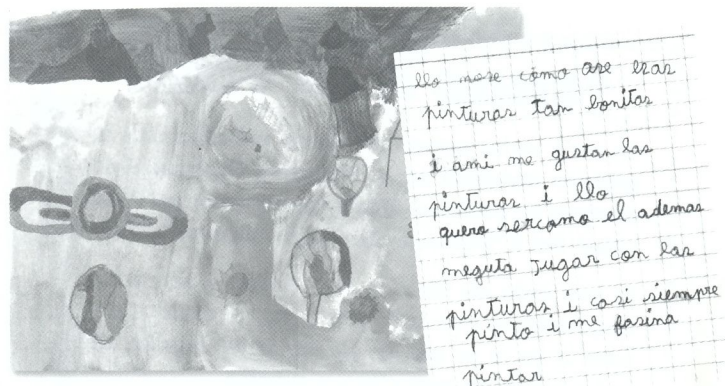 llo nose cómo ase esas
pinturas tan bonitas
i ami me gustan las
pinturas i llo
quero sercomo el ademas
meguta jugar con las
pinturas i casi siempre
pinto i me fasina
pintar